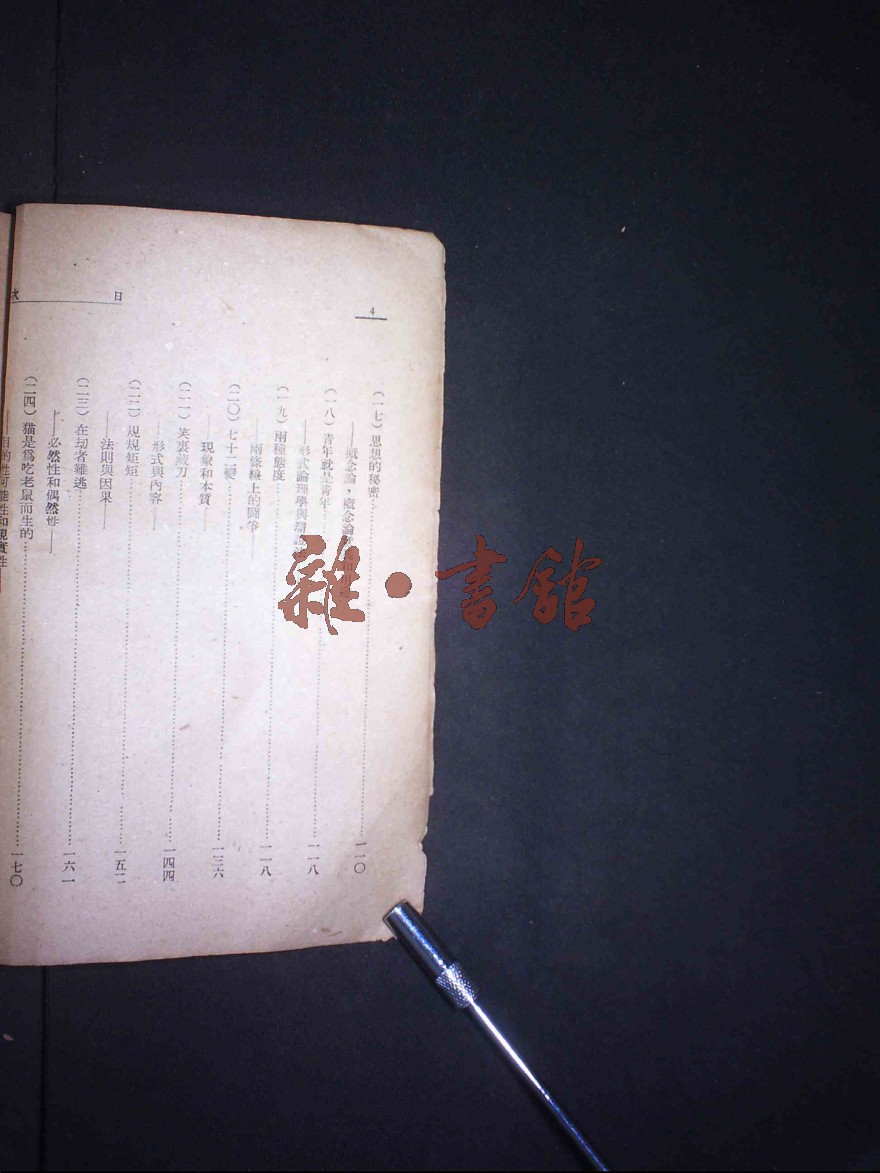 目次
4
(一七)思想的秘密……一一〇
——概念論，概念論
(一八)青年就是青年……一一八
——形式論理學與
(一九)兩種態度……一一八
——兩條線上的鬪爭——
(二〇)七十二變……一三六
——現象和本質——
(二一)笑裏藏刀……一四四
——形式與內容——
(二二)規規矩矩……一五二
——法則與因果——
(二三)在刧者難逃……一六一
——必然性和偶然性——
(二四)猫是爲吃老鼠而生的……一七〇
——目的性可能性和現實性
雜·書館